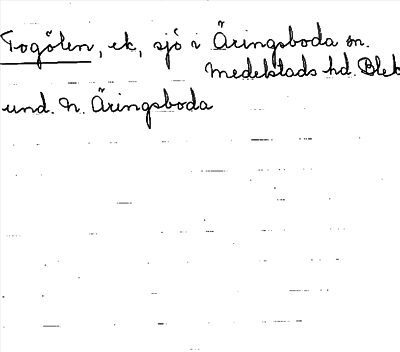 Fogölen, ek, sjö i Äringsboda sn.
Medelstads hd. Blek
und. N. Äringsboda